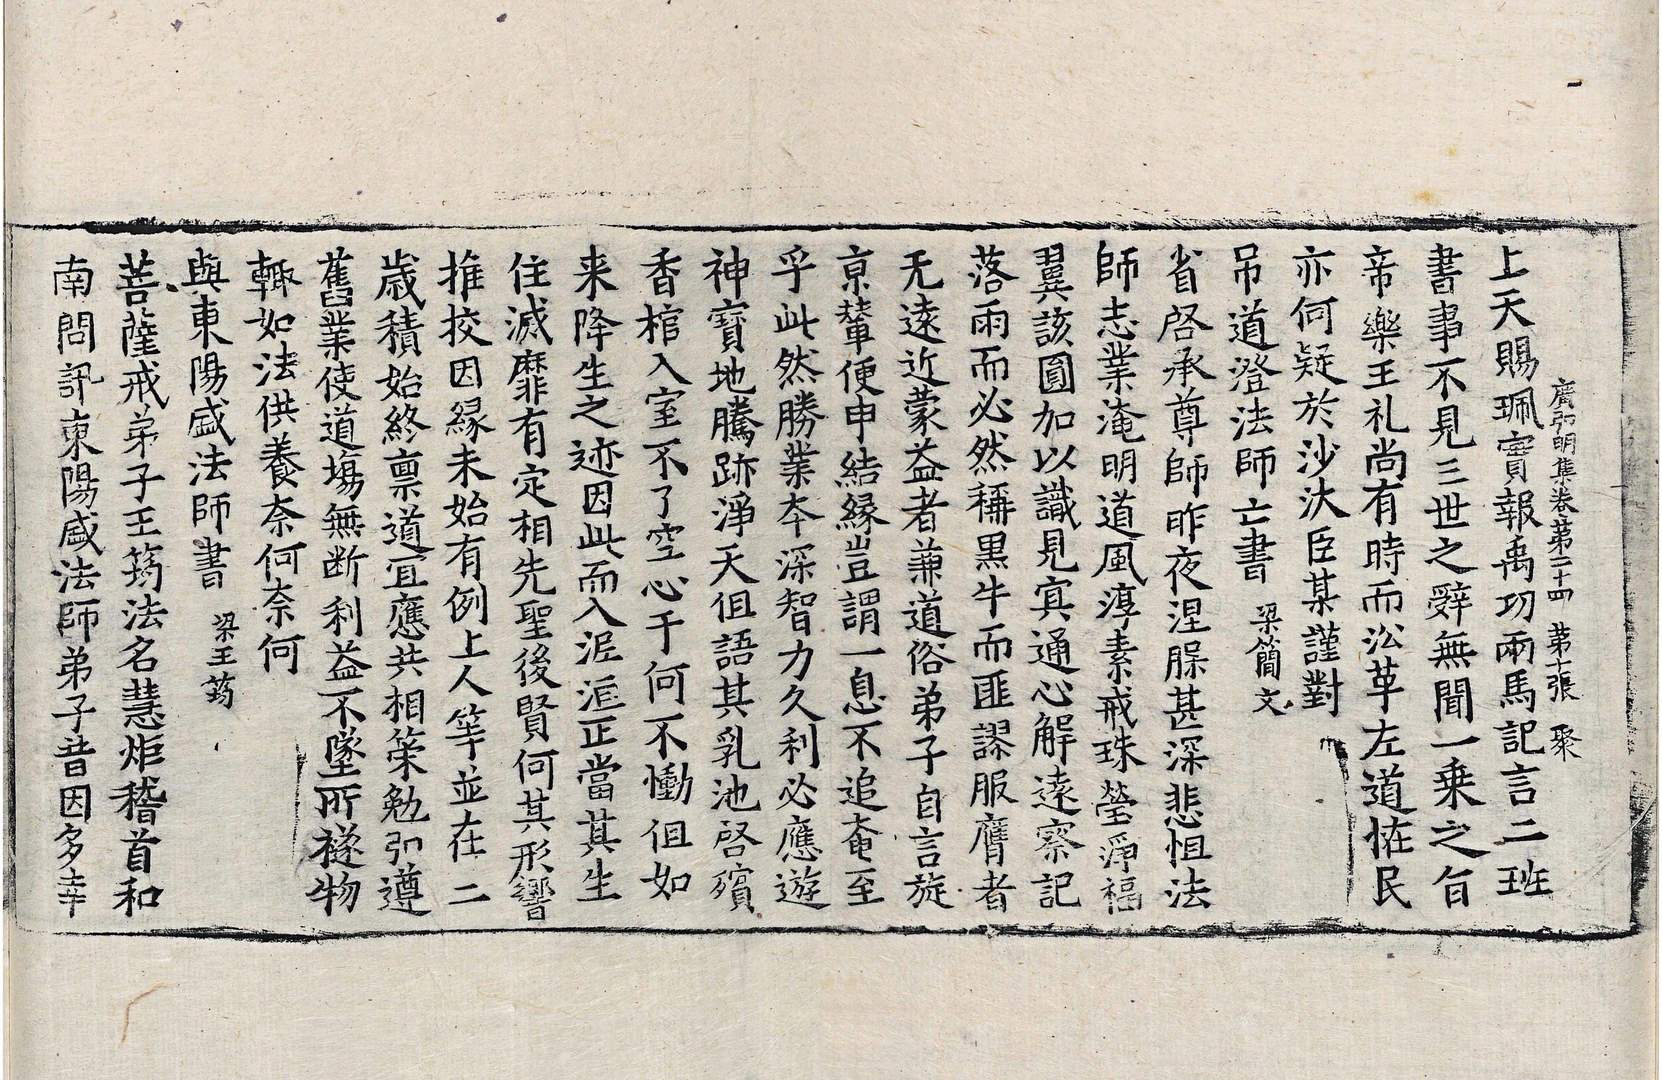 廣弘明集卷第二十四　第十張　聚
上天賜珮實報禹功兩馬記言二班
書事不見三世之辭無聞一乗之旨
帝樂王礼尚有時而㳂革左道恠民
亦何疑於沙汰臣某謹對
吊道澄法師亡書　梁簡文
省啓承尊師昨夜涅脵甚深悲怛法
師志業淹明道風淳素戒珠瑩淨福
翼該圓加以識見寘通心解遠察記
落雨而必然稱黒牛而匪謬服膺者
无遠近蒙益者兼道俗弟子自言旋
京輦便申結縁豈謂一息不追奄至
乎此然勝業夲深智力久利必應遊
神寶地騰跡淨天伹語其乳池啓殯
香棺入室不了空心于何不慟伹如
来降生之迹因此而入泥洹正當其生
住滅靡有定相先聖後賢何其形響
推挍因縁未始有例上人等並在二
歳積始終禀道宜應共相策勉弘遵
舊業使道場無断利益不墜所襚物
輙如法供養柰何柰何
與東陽盛法師書　梁王筠
菩薩戒弟子王筠法名慧炬稽首和
南問訊東陽盛法師弟子昔因多幸